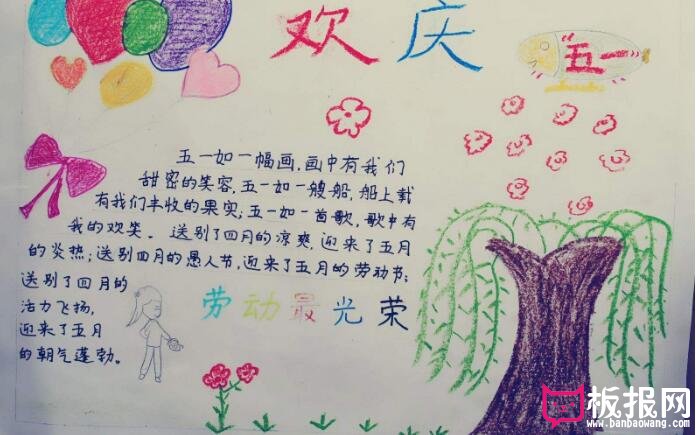 欢庆
"五一"
五一如一幅画,画中有我们
甜密的笑容,五一如一艘船,船上载
有我们丰收的果实;五一如一首歌,歌中有
我的欢笑。送别了四月的凉爽,迎来了五月
的炎热;送别四月的愚人节,迎来了五月的劳动节;
送别了四月的
活力飞扬,
迎来了五月
的朝气蓬勃。
劳动最光荣
板报网
www.banbaowang.com